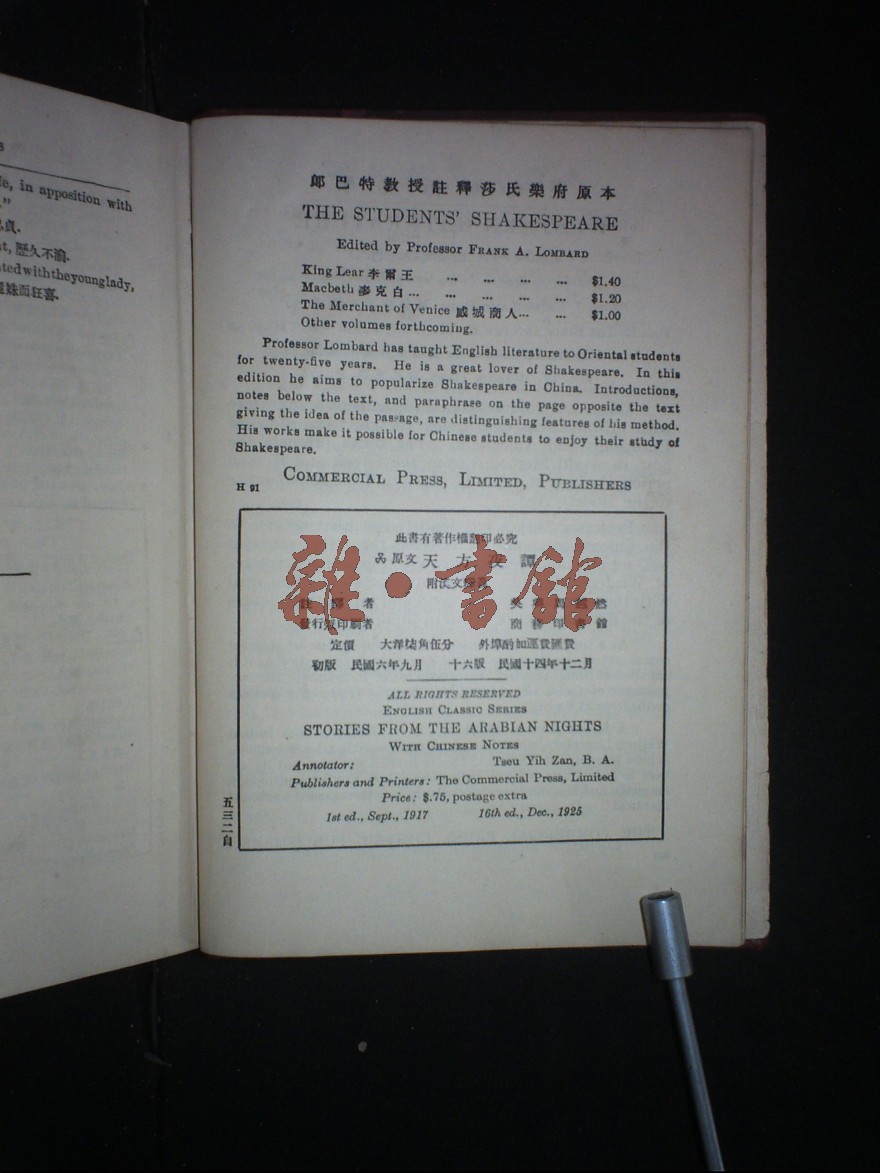 s
le, in apposition with
”
貞.
t, 歷久不渝.
ted with the young lady,
妹而狂喜.
郎巴特教授註釋莎氏樂府原本
THE STUDENTS' SHAKESPEARE
Edited by Professor FRANK A. LOMBARD
King Lear 李爾王 ... ... ... ... $1.40
Macbeth 麥克白 ... ... ... ... ... $1.20
The Merchant of Venice 威城商人 ... ... $1.00
Other volumes forthcoming.
Professor Lombard has taught English literature to Oriental students
for twenty-five years. He is a great lover of Shakespeare. In this
edition he aims to popularize Shakespeare in China. Introductions,
notes below the text, and paraphrase on the page opposite the text
giving the idea of the passage, are distinguishing features of his method.
His works make it possible for Chinese students to enjoy their study of
Shakespeare.
COMMERCIAL PRESS, LIMITED, PUBLISHERS
H 91
此書有著作權翻印必究
原文 天方夜譚
附漢文
者 吳
發行兼印刷者 商務印書館
定價 大洋柒角伍分 外埠酌加運費匯費
初版 民國六年九月 十六版 民國十四年十二月
ALL RIGHTS RESERVED
ENGLISH CLASSIC SERIES
STORIES FROM THE ARABIAN NIGHTS
WITH CHINESE NOTES
Annotator: Tseu Yih Zan, B. A.
Publishers and Printers: The Commercial Press, Limited
Price: $.75, postage extra
1st ed., Sept., 1917 16th ed., Dec., 1925
五三二自
雜·書館